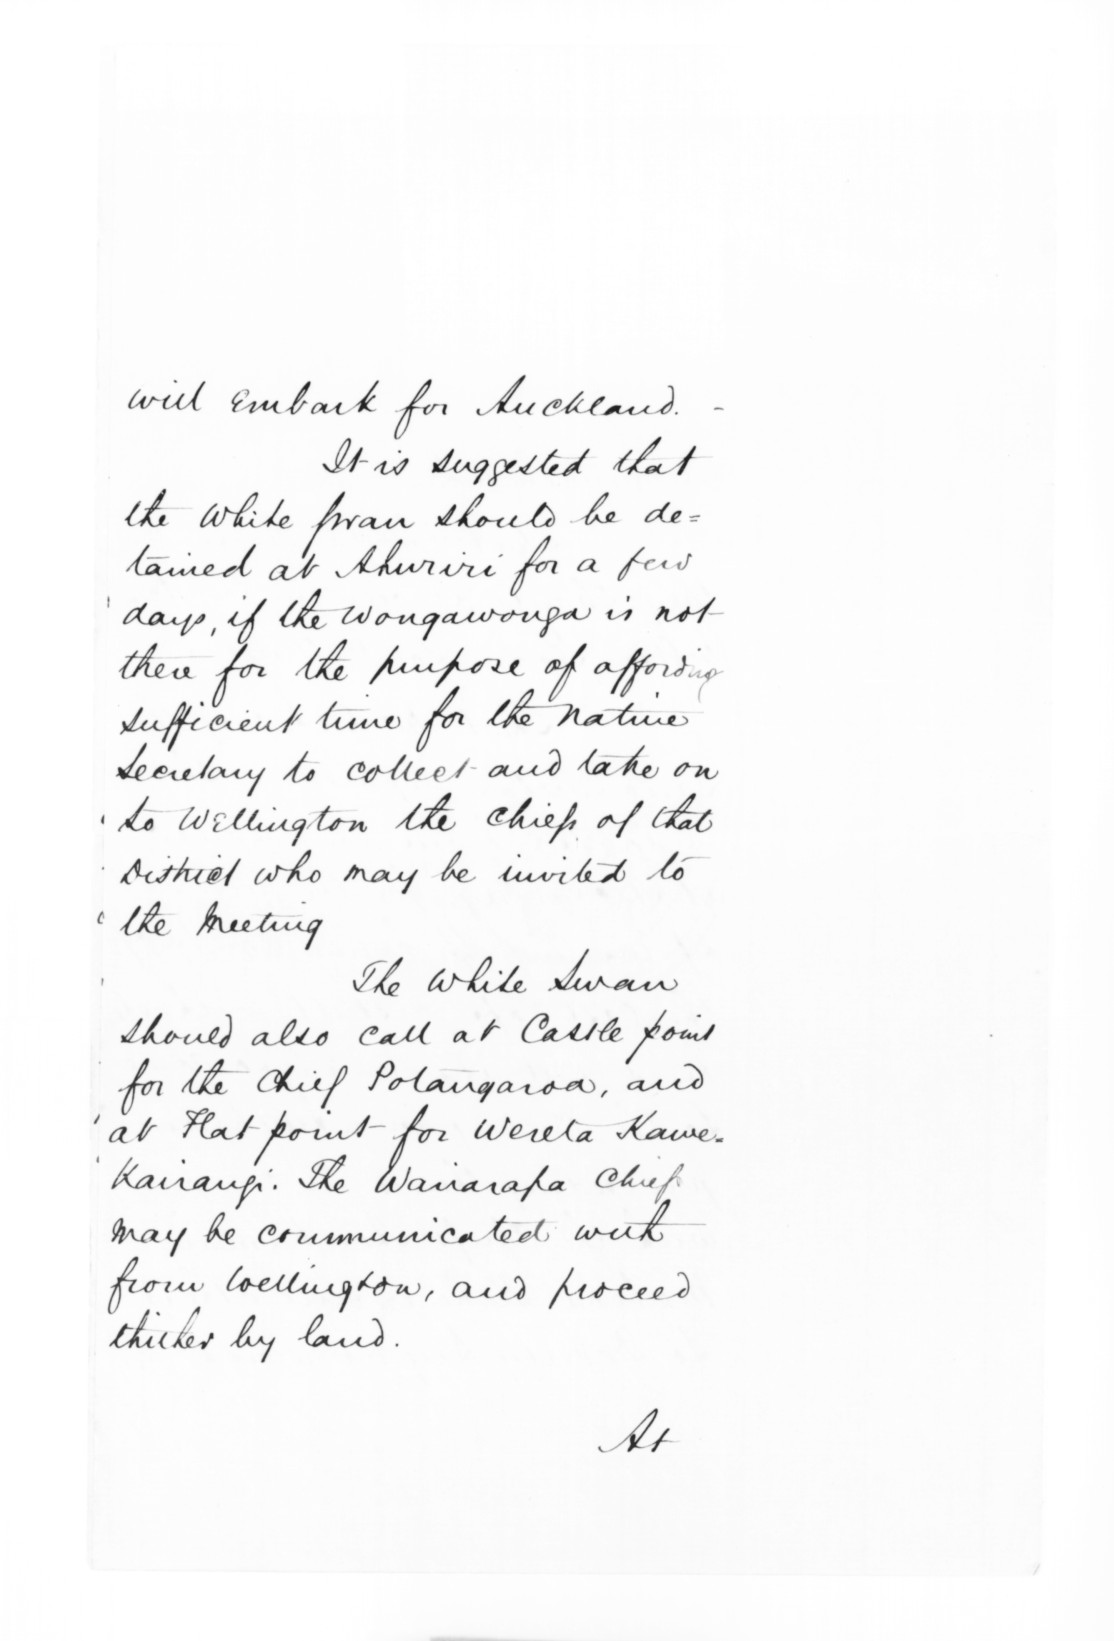 will embark for Auckland. -
It is suggested that
the White Swan should be de=
tained at Ahuriri for a few
days, if the Wongawonga is not
there for the purpose of affording
sufficient time for the Native
Secretary to collect and take on
to Wellington the chiefs of that
District who may be invited to
the Meeting
The White Swan
should also call at Castle point
for the Chief Potangaroa, and
at Flat point for Wereta Kawe=
Kairangi. The Wairarapa Chiefs
may be communicated with
from Wellington, and proceed
thither by land.
At